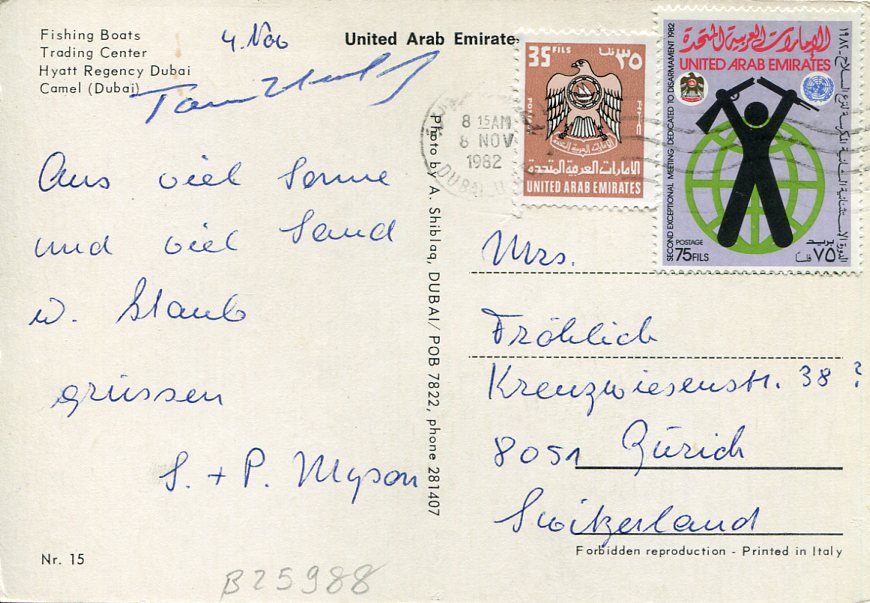 Fishing Boats
Trading Center
Hyatt Regency Dubai
Camel (Dubai)
4. Nov
United Arab Emirates
Aus viel Sonne
und viel Sand
u. Staub
grüssen
S. + P. Myson
Nr. 15
B25988
Photo by A. Shiblaq, DUBAI/ POB 7822, phone 281407
8 15AM
8 NOV
1982
DUBAI U
35 FILS
٣٥ فلسا
POSTAGE
بريد
الإمارات العربية المتحدة
الإمارات العربية المتحدة
UNITED ARAB EMIRATES
الإمارات العربية المتحدة
UNITED ARAB EMIRATES
SECOND EXCEPTIONAL MEETING DEDICATED TO DISARMAMENT 1982
الدورة الاستثنائية الثانية المكرسة لنزع السلاح ١٩٨٢
POSTAGE
75 FILS
بريد
٧٥ فلسا
Mrs.
Fröhlich
Kreuzwiesenstr. 38 ?
8051 Zürich
Switzerland
Forbidden reproduction - Printed in Italy